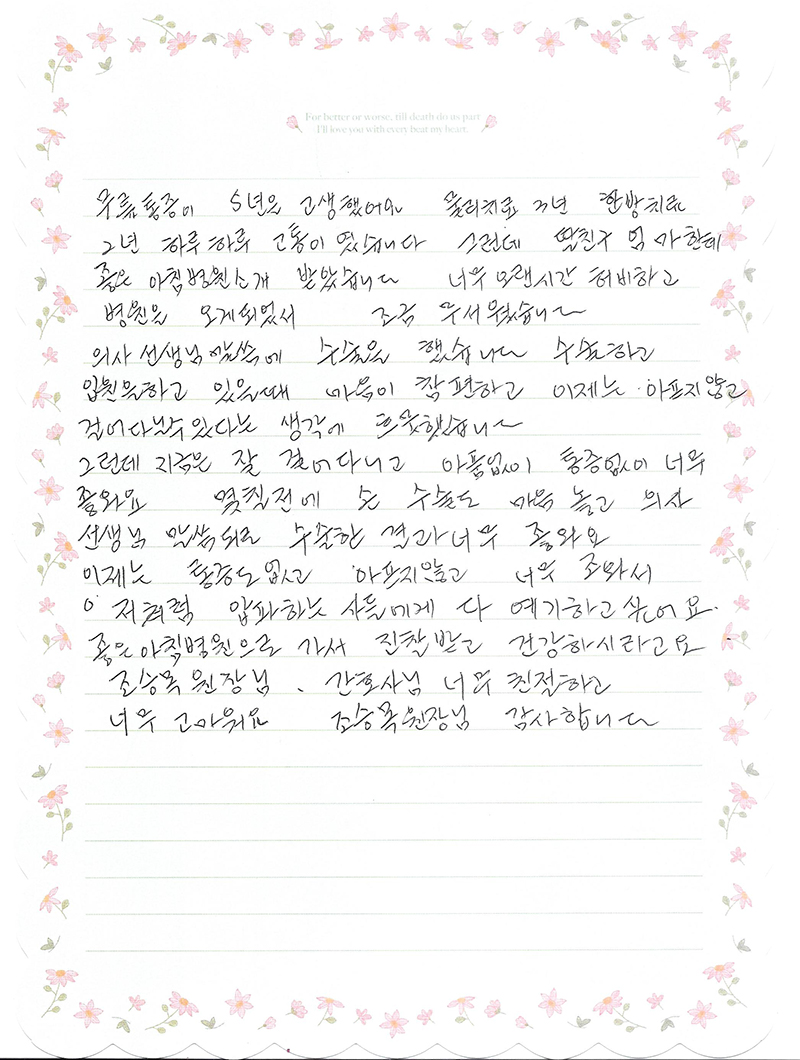 For better or worse, till death do us part
I'll love you with every beat my heart.
무릎통증이 5년은 고생했어요 물리치료 3년 한방치료
2년 하루하루 고통이 였습니다 그런데 딸친구 엄마한테
좋은 아침병원소개 받았습니다 너무 오랜시간 허비하고
병원을 오게되었서 조금 무서웠습니다
의사선생님말씀에 수술을 했습니다 수술하고
입원을하고 있을때 마음이 참 편하고 이제는 아프지않고
걸어다닐수있다는 생각에 흐뭇했습니다
그런데 지금은 잘 걸어다니고 아픔없이 통증없이 너무
좋와요 몇칠전에 손 수술도 마음 놓고 의사
선생님 말씀되로 수술한 결과너무 좋와요
이제는 통증도없고 아프지않고 너무 조와서
저처럼 압파하는 사들에게 다 얘기하고싶어요.
좋은아침병원으로 가서 진찰받고 건강하시라고요
조승목원장님、간호사님 너무친절하고
너무 고마워요 조승목원장님 감사합니다